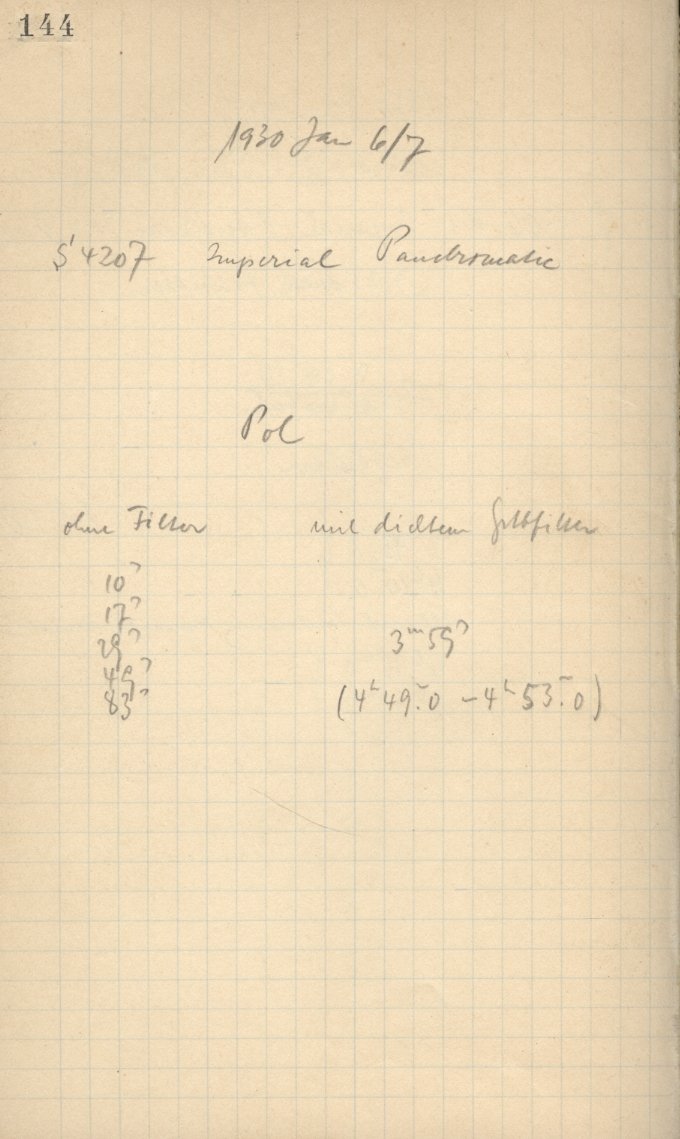 144
1930 Jan 6/7
S 4207 Imperial Panchromatic
Pol
ohne Filter mit dichtem Gelbfilter
10ˢ
17ˢ
29ˢ 3ᵐ 59ˢ
49ˢ
83ˢ (4ʰ 49ᵐ.0 – 4ʰ 53ᵐ.0)